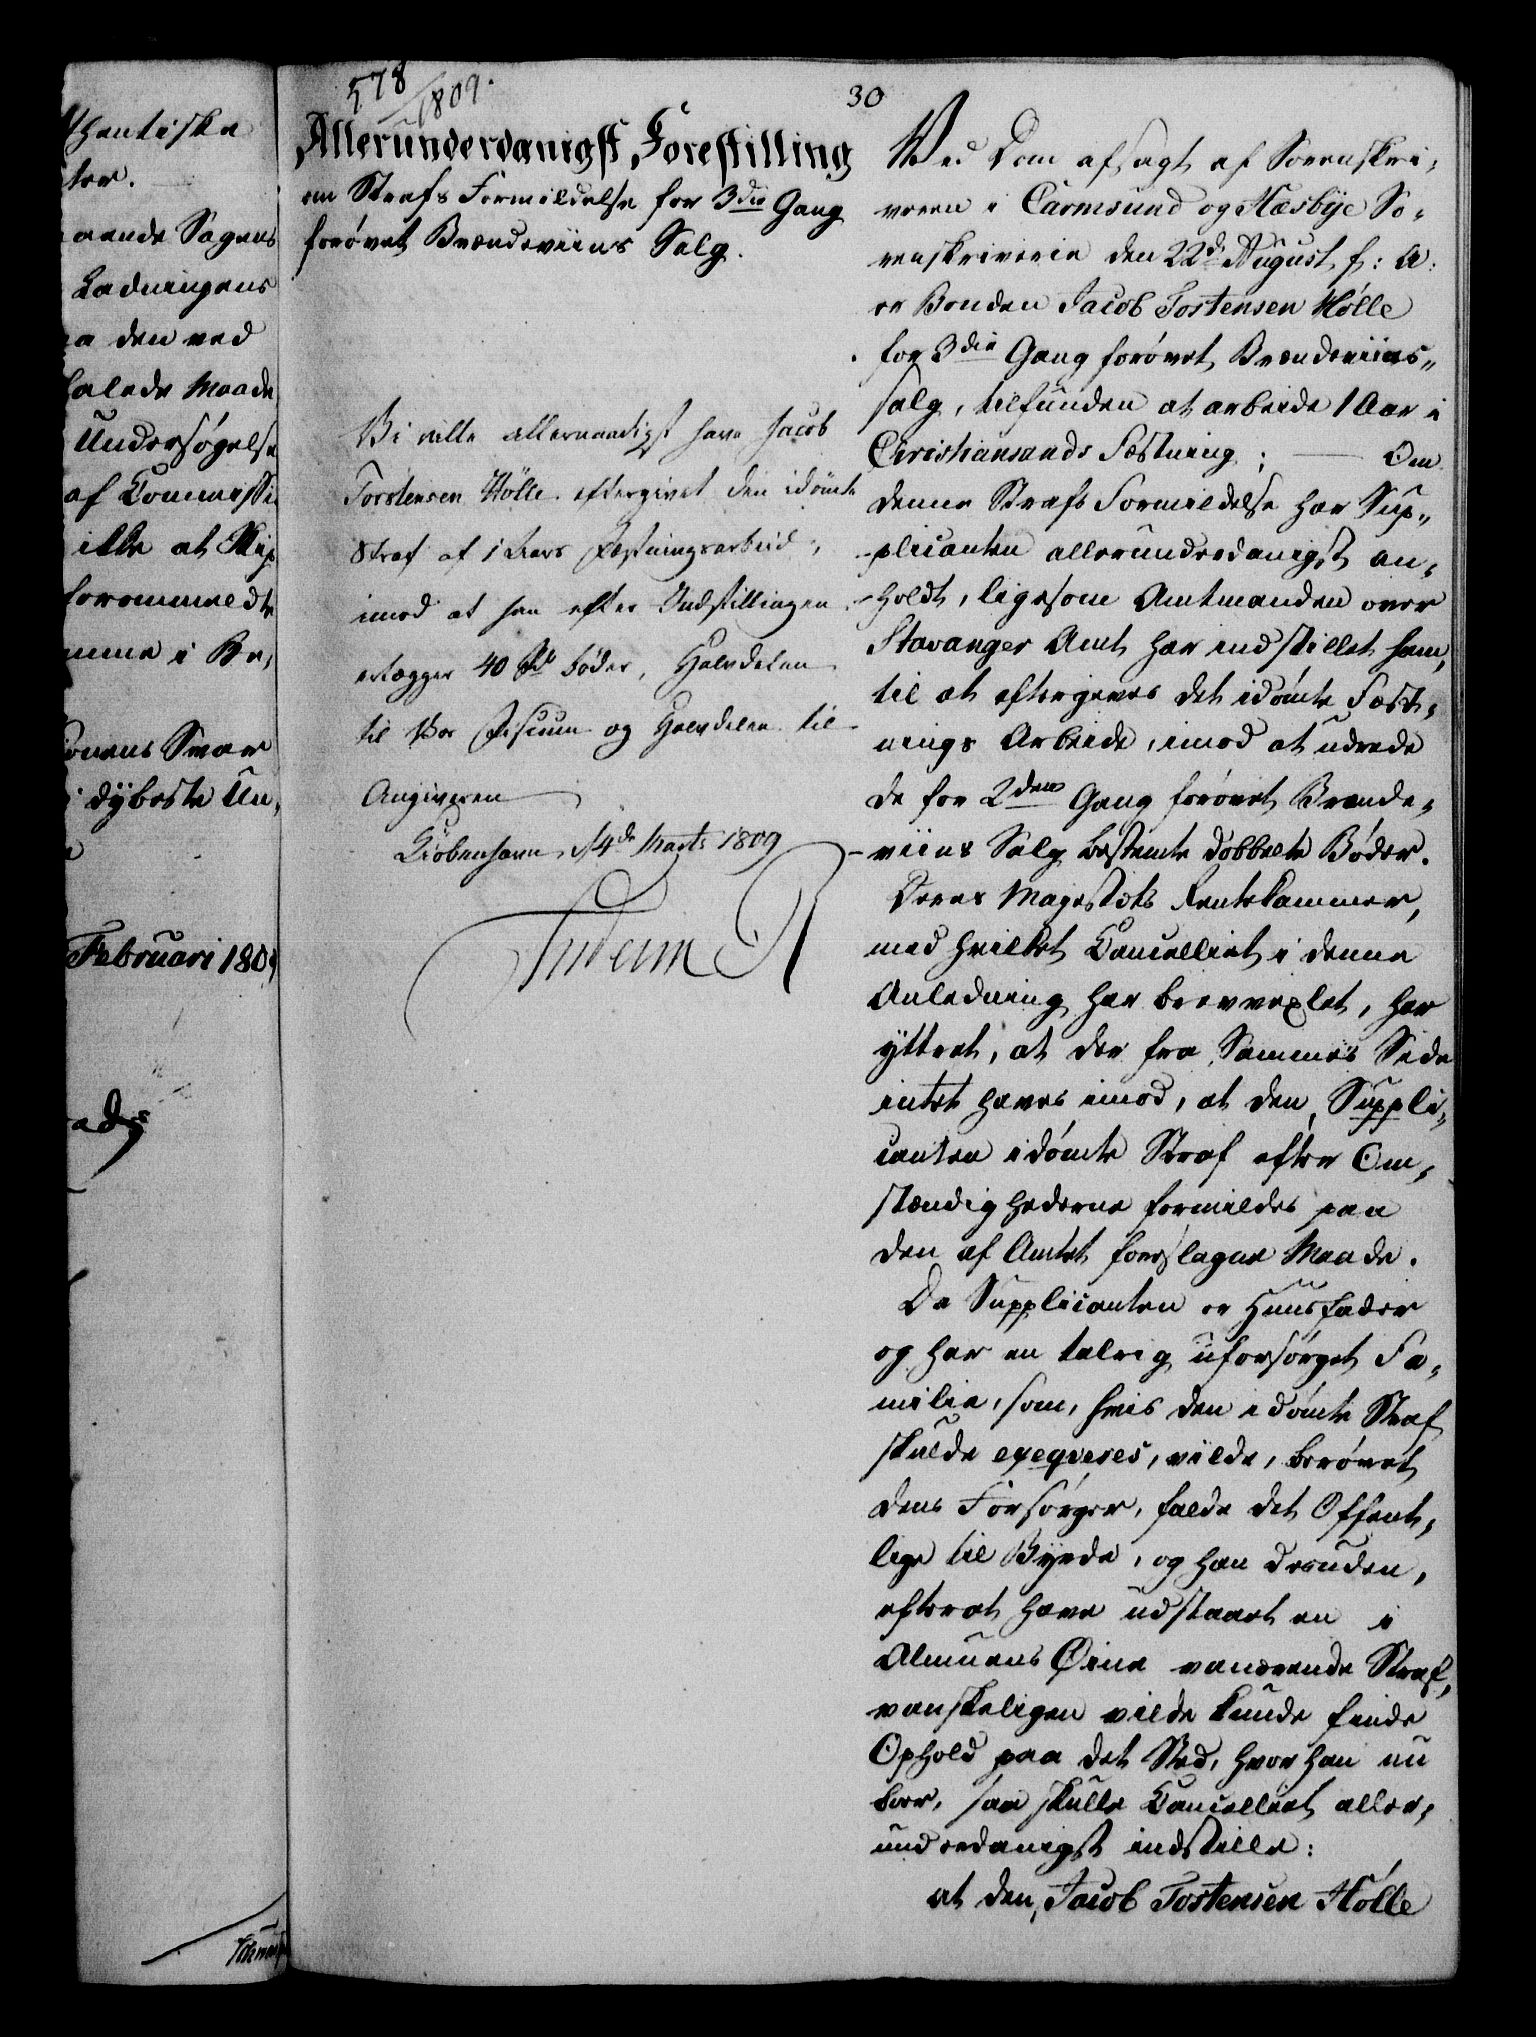 thentiske
ter.
aende Sagens
Ladningens
a den ved
talede Maade
Undersøgelse
af Commissi
ikke at Skip
foranmeldte
mme i Be,
onens Svar
i dybeste Un,
Februari 1809
578/1809.
30
Allerunderdanigst Forestilling
om Strafs Formildelse for 3die Gang
forøvet Brændeviins Salg.
Vi ville allernaadigst have Jacob
Torstensen Hölle eftergivet den idömte
Straf af 1 Aars Fæstningsarbeid,
imod at han efter Indstillingen
erlægger 40 Rd Böder, Halvdelen
til Vor Fiscum og Halvdelen til
Angiveren
Kiöbenhavn, d 4de Marts 1809
Frederik R
Ved Dom afsagt af Sorenskri,
veren i Carmsund og Hæsbye So,
renskriverie den 22de August f: A:
er Bonden Jacob Tostensen Hölle
for 3die Gang forøvet Brændeviins„
salg, tilfunden at arbeide 1 Aar i
Christiansands Fæstning; — Om
denne Strafs Formildelse har Sup„
plicanten allerunderdanigst an,
holdt, ligesom Amtmanden over
Stavanger Amt har indstillet ham,
til at eftergives det idömte Fæst,
nings Arbeide, imod at udrede
de for 2den Gang forövet Brænde,
viins Salg bestemte dobbelte Böder.
Deres Majestæts Rentekammer,
med hvilket Cancelliet i denne
Anledning har brevvexlet, har
yttret, at der fra Sammes Side
intet haves imod, at den, Suppli„
canten idömte Straf efter Om,
stændighederne formildes paa
den af Amtet foreslagne Maade.
Da Supplicanten er Huusfader
og har en talrig uforsörget Fa,
milie, som, hvis den idömte Straf
skulde exeqveres, vilde, berövet
dens Forsörger, falde det Offent,
lige til Byrde, og han desuden,
efterat have udstaaet en i
Almuens Öine vanærende Straf,
vanskeligen vilde kunde finde
Ophold paa det Sted, hvor han nu
boer, saa skulle Cancelliet aller,
underdanigst indstille:
at den, Jacob Tostensen Hölle